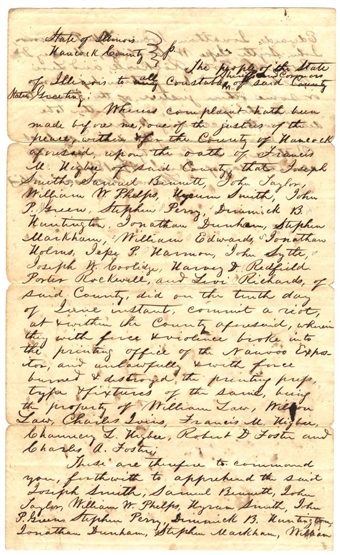 State of Illinois
Hancock County } ss.
The people of the State
of Illinois to all Constables, Sheriffs and Coroners of said County
State, Greeting:
Whereas complaint hath been
made before me, one of the justices of the
peace, within & for the County of Hancock
aforesaid, upon the oath of Francis
M. Higbee of said County, that Joseph
Smith, Samuel Bennett, John Taylor,
William W. Phelps, Hyrum Smith, John
P. Green, Stephen Perry, Dimmick B.
Huntington, Jonathan Dunham, Stephen
Markham, William Edwards, Jonathan
Holms, Jesse P. Harmon, John Lytle,
Joseph W. Coolidge, Harvey D. Redfield
Porter Rockwell, and Levi Richards, of
said County, did on the tenth day
of June instant, commit a riot,
at & within the County aforesaid, wherein
they with force & violence broke into
the printing office of the Nauvoo Expos-
itor, and unlawfully & with force
burned & destroyed the printing press,
type & fixtures of the same, being
the property of William Law, Wilson
Law, Charles Ivins, Francis M. Higbee,
Chauncey L. Higbee, Robert D. Foster and
Charles A. Foster,
These are therefore to command
you, forthwith to apprehend the said
Joseph Smith, Samuel Bennett, John
Taylor, William W. Phelps, Hyrum Smith, John
P. Green, Stephen Perry, Dimmick B. Huntington,
Jonathan Dunham, Stephen Markham, William